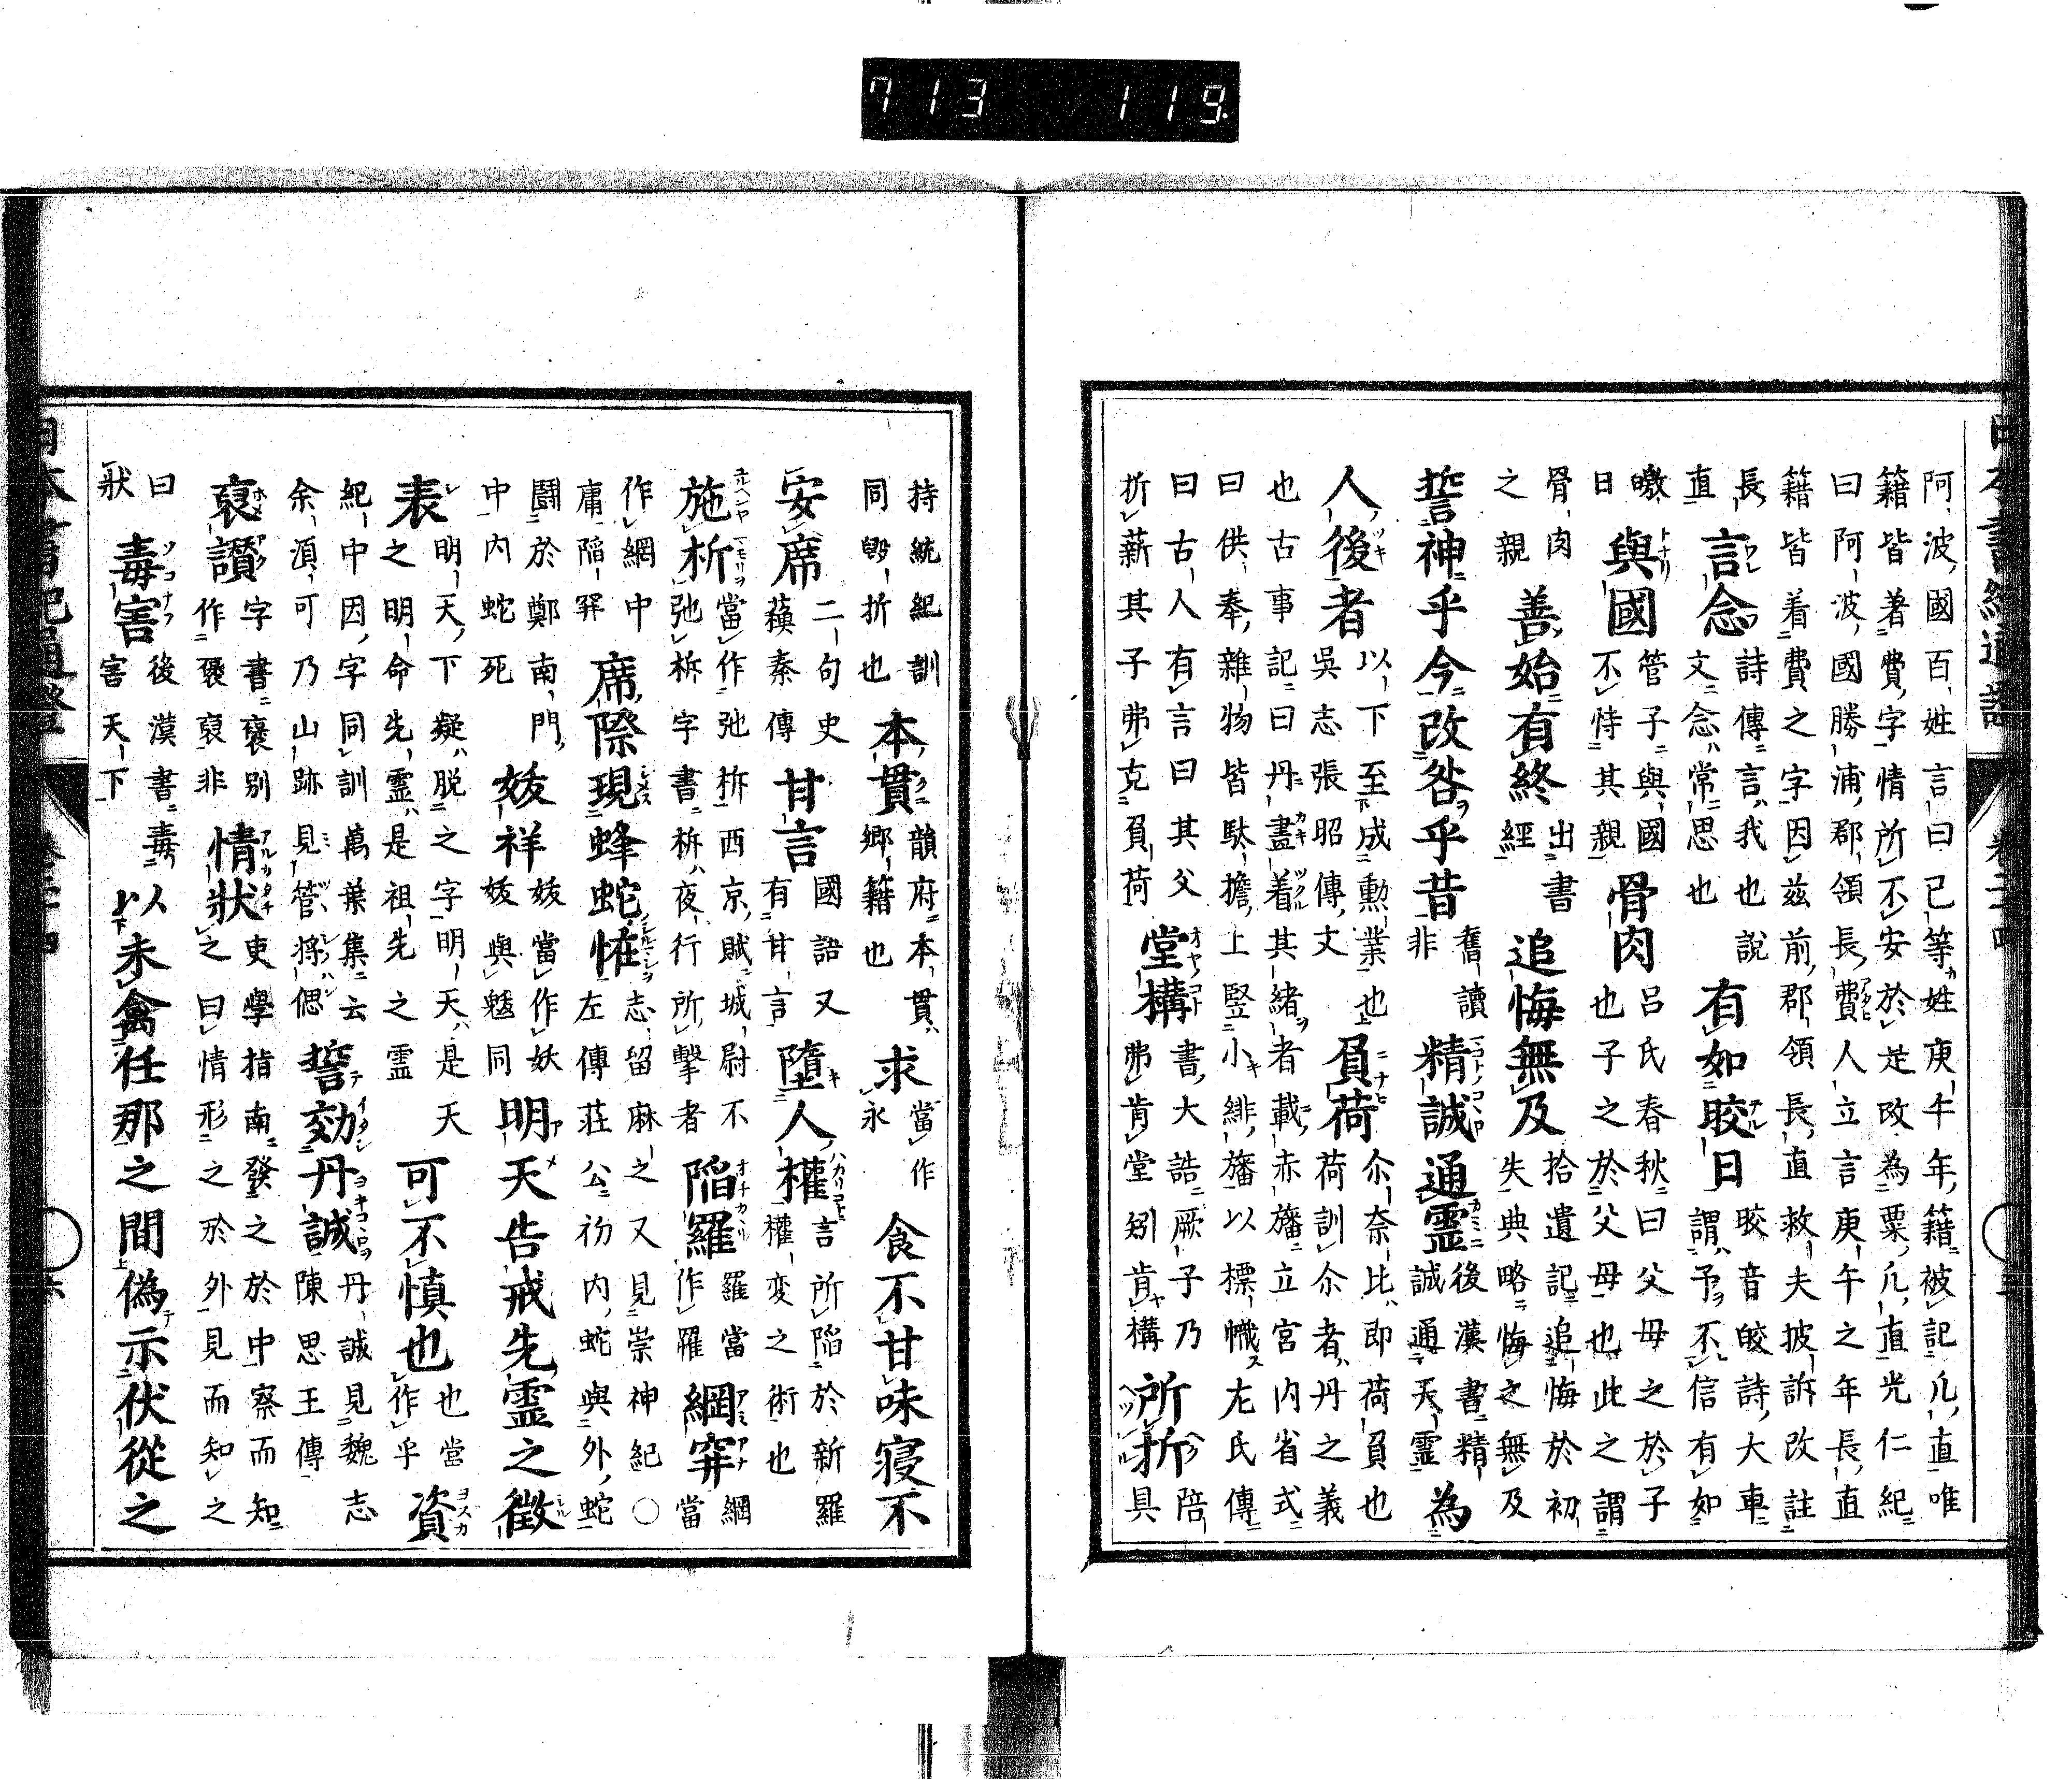 713 119
日本書紀通證 卷二十四
阿波國百姓言曰已等姓庚午年籍被記凡直唯
籍皆著費字情所不安於是改為粟凡直光仁紀
曰阿波國勝浦郡領長費人立言庚午之年長直
籍皆着費之字因茲前郡領長直救夫披訴改註
長直 言念 詩傳言我也說文念常思也 有如皎日 皎音皎詩大車謂予不信有如
皦日 與國 管子與國不恃其親 骨肉 呂氏春秋曰父母之於子也子之於父母也此之謂
骨肉之親 善始有終 出書經 追悔無及 拾遺記追悔於初失典略悔之無及
誓神乎今改咎乎昔 舊讀非 精誠通霊 後漢書精誠通天霊 為
人後者 以下至成勲業也吳志張昭傳文 負荷 尒奈比即荷負也荷訓尒者丹之義
也古事記曰丹盡着其緒者載赤旛立宮內省式
曰供奉雜物皆駄擔上竪小緋旛以標幟左氏傳
曰古人有言曰其父折薪其子弗克負荷 堂構 書大誥厥子乃弗肯堂矧肯構 所折 陪具
持統紀訓同毀折也 本貫 韻府本貫鄉籍也 求 當作永 食不甘味寝不
安席 二句史蘓秦傳 甘言 國語又有甘言 墮人權 言所陷於新羅權変之術也
施析 當作弛柝西京賦城尉不弛柝字書柝夜行所擊者 陷羅 羅當作罹 網穽 網當
作網中庸陷穽 席際現蜂蛇恠 志留麻之又見崇神紀○左傳莊公初內蛇與外蛇
鬪於鄭南門中內蛇死 妭祥 妭當作妖妭與魃同 明天告戒先霊之徵
表 明天下疑脱之字明天是天之明命先霊是祖先之霊 可不慎也 也當作乎 資
紀中因字同訓萬葉集云余湏可乃山跡見管偲 誓効丹誠 丹誠見魏志陳思王傳
裒讃 字書裒別作褒裒非 情狀 吏學指南發之於中察而知之曰情形之於外見而知之
曰狀 毒害 後漢書毒害天下 以未禽任那之間偽示伏從之
日本書紀通證 卷二十四 六